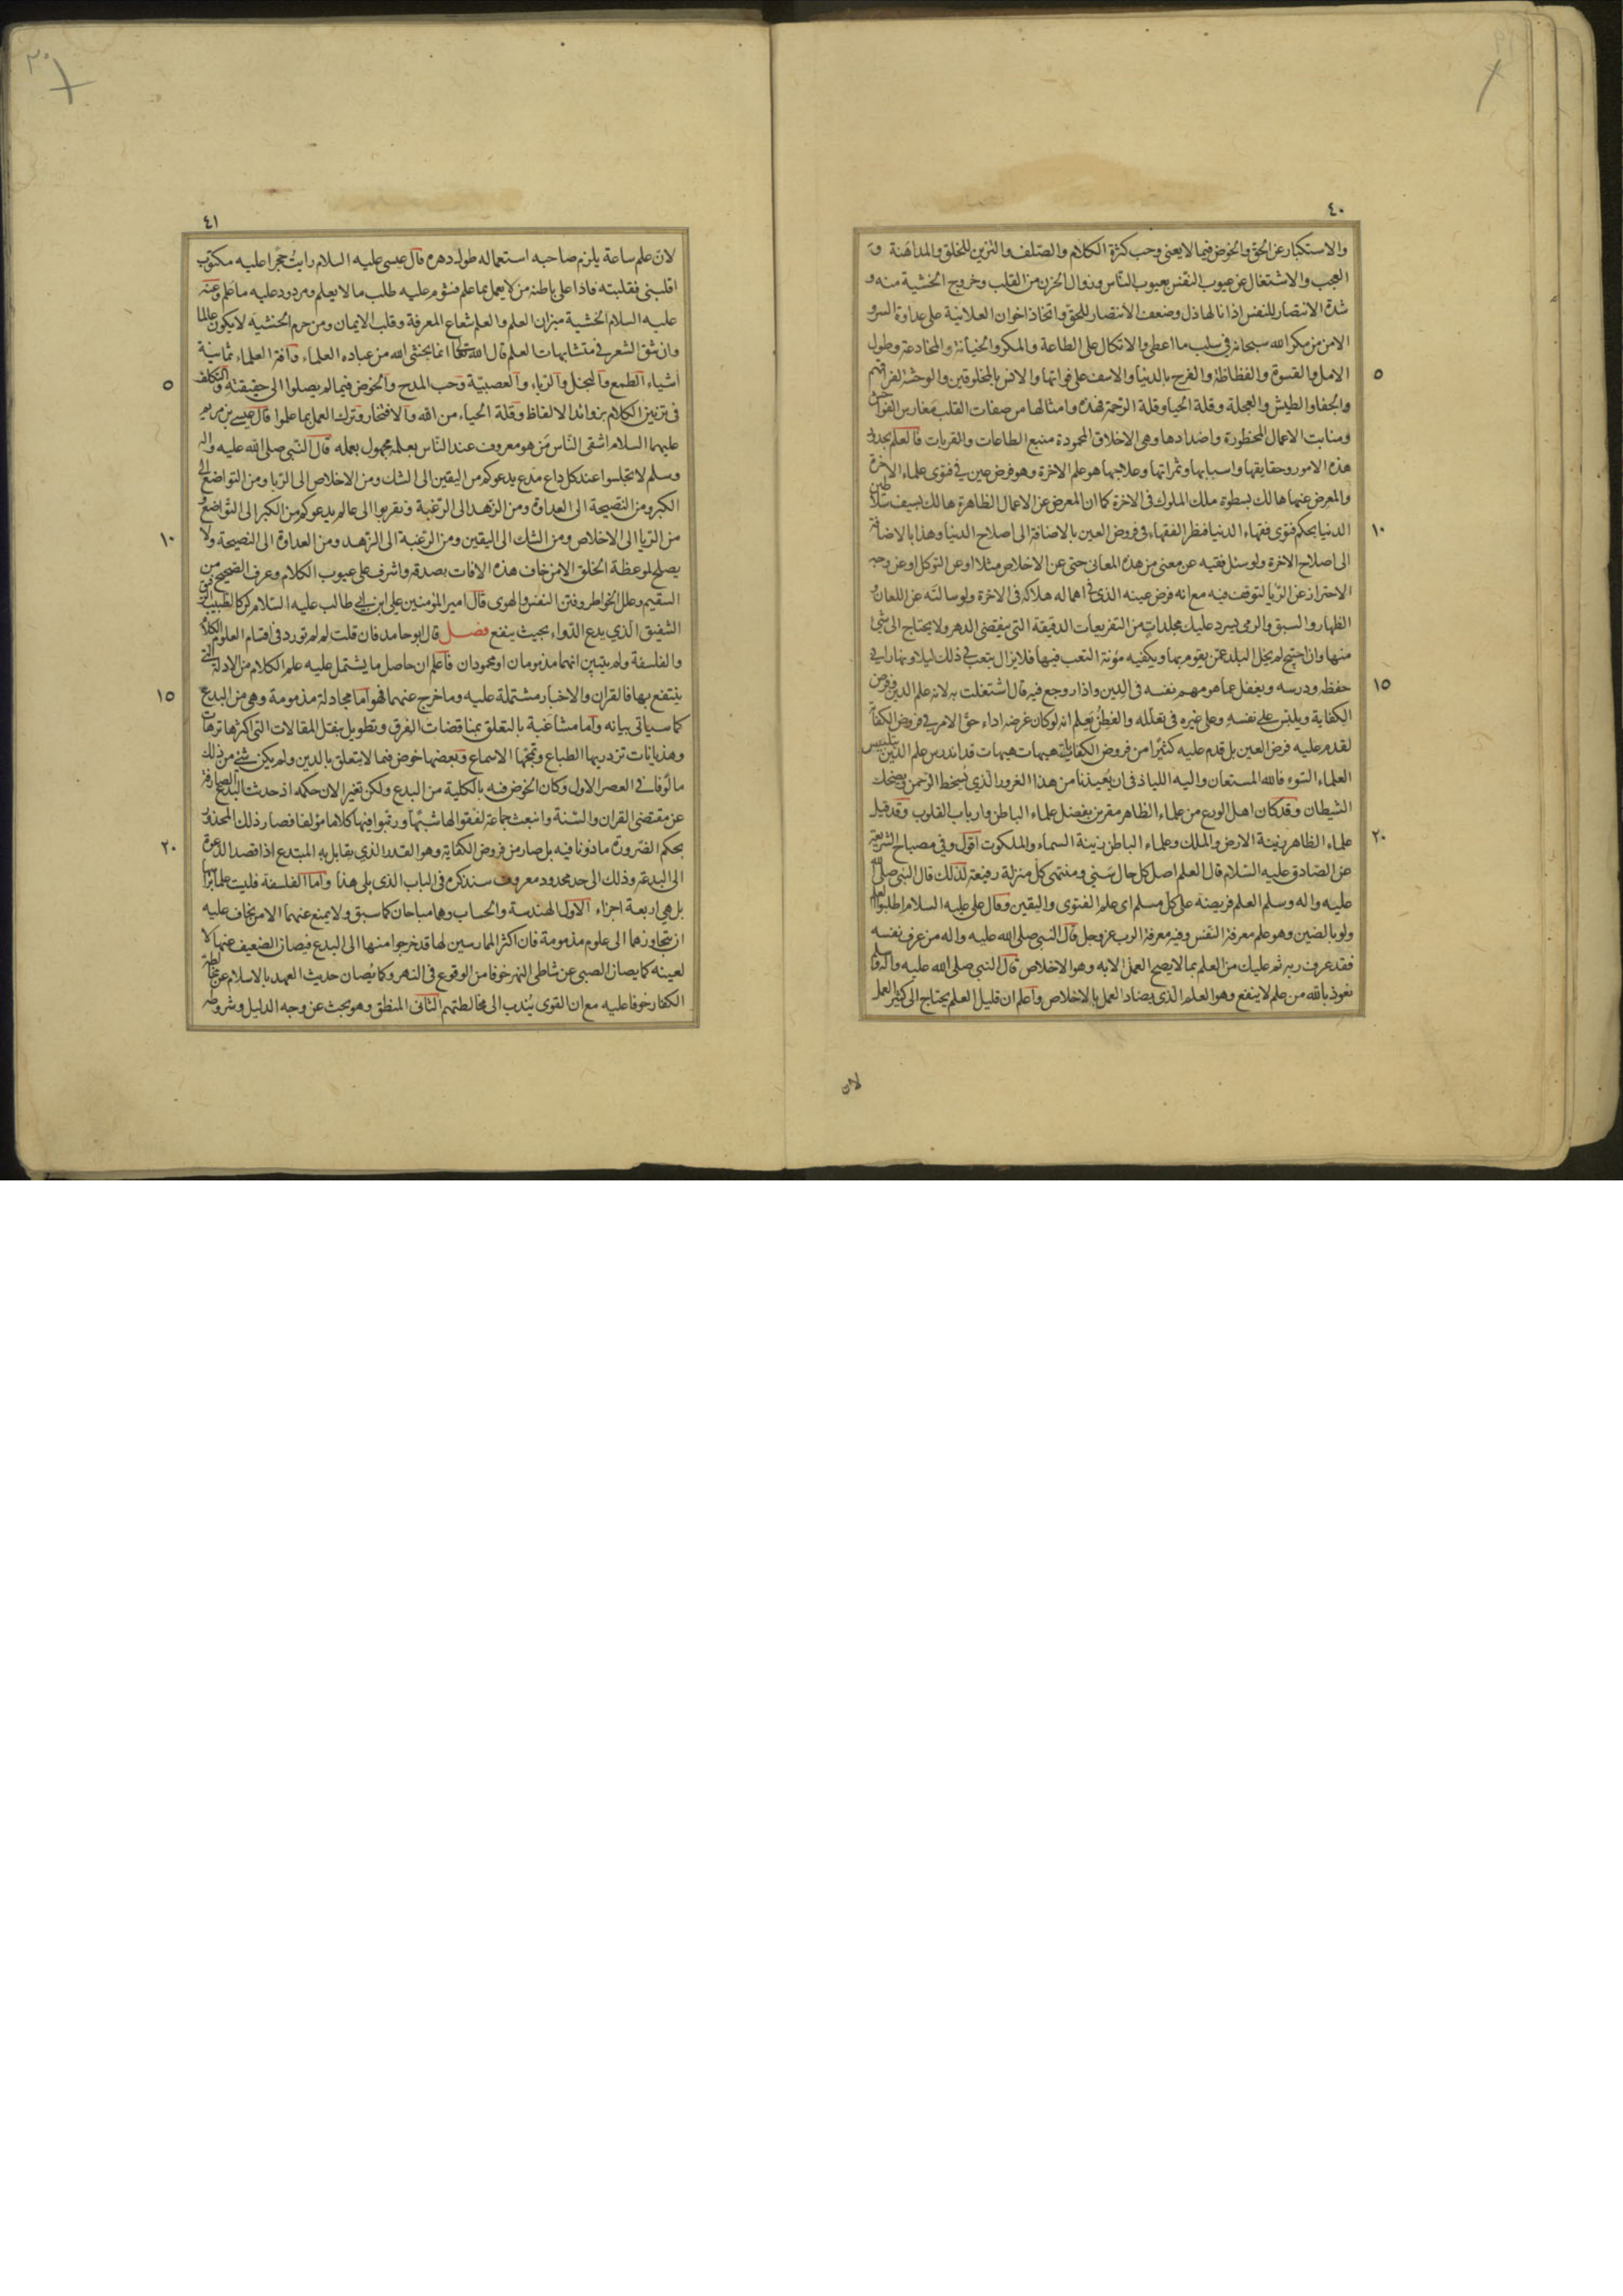 ٤٠
والاستكبار عن الحق والخوض فيما لا يعنى وحب كثرة الكلام والصلف والتزين للخلق والمداهنة و
العجب والاشتغال عن عيوب النفس بعيوب الناس وزوال الحزن من القلب وخروج الخشية منه و
شدة الانتصار للنفس اذا نالها ذل وضعف الانتصار للحق واتخاذ اخوان العلانية على عداوة السر و
الامن من مكر الله سبحانه فى سلب ما اعطى والاتكال على الطاعة والمكر والخيانة والمخادعة وطول
٥
الامل والقسوة والفظاظة والفرح بالدنيا والاسف على فواتها والانس بالمخلوقين والوحشة لفراقهم
والجفا والطيش والعجلة وقلة الحيا وقلة الرحمة فهذه وامثالها من صفات القلب مغارس الفواحش
ومنابت الاعمال المحظورة واضدادها وهى الاخلاق المحمودة منبع الطاعات والقربات فالعلم بحدود
هذه الامور وحقايقها واسبابها وثمراتها وعلاجها هو علم الاخرة وهو فرض عين فى فتوى علماء الاخرة
والمعرض عنها هالك بسطوة ملك الملوك فى الاخرة كما ان المعرض عن الاعمال الظاهرة هالك بسيف سلاطين
١٠
الدنيا بحكم فتوى فقهاء الدنيا فنظر الفقهاء فى فروض العين بالاضافة الى اصلاح الدنيا وهذا بالاضافة
الى اصلاح الاخرة ولو سئل فقيه عن معنى من هذه المعانى حتى عن الاخلاص مثلا او عن التوكل او عن وجه
الاحتراز عن الريا لتوقف فيه مع انه فرض عينه الذى فى اهماله هلاكه فى الاخرة ولو سالته عن اللعان و
الظهار والسبق والرمى يسرد عليك مجلدات من التفريعات الدقيقة التى ينقضى الدهر ولا يحتاج الى شئ
منها وان احتيج لم يخل البلد عمن يقوم بها ويكفيه مؤنة التعب فيها فلا يزال يتعب فى ذلك ليلا ونهارا فى
١٥
حفظه ودرسه ويغفل عما هو مهم نفسه فى الدين واذا روجع فيه قال اشتغلت به لانه علم الدين وفرض
الكفاية ويلبس على نفسه وعلى غيره فى تعلله والفطن يعلم انه لو كان غرضه اداء حق الامر فى فروض الكفاية
لقدم عليه فرض العين بل قدم عليه كثيرا من فروض الكفايات هيهات هيهات قد اندرس علم الدين بتلبيس
العلماء السوء فالله المستعان واليه اللياذ فى ان يعيذنا من هذا الغرور الذى يسخط الرحمن ويضحك
الشيطان وقد كان اهل الورع من علماء الظاهر مقرين بفضل علماء الباطن وارباب القلوب وقد قيل
٢٠
علماء الظاهر زينة الارض والملك وعلماء الباطن زينة السماء والملكوت اقول وفى مصباح الشريعة
عن الصادق عليه السلام قال العلم اصل كل حال سنى ومنتهى كل منزلة رفيعة لذلك قال النبى صلى الله
عليه واله وسلم العلم فريضة على كل مسلم اى علم الفتوى واليقين وقال على عليه السلام اطلبوا العلم
ولو بالصين وهو علم معرفة النفس وفيه معرفة الرب عز وجل قال النبى صلى الله عليه واله من عرف نفسه
فقد عرف ربه ثم عليك من العلم بما لا يصح العمل الا به وهو الاخلاص قال النبى صلى الله عليه واله وسلم
نعوذ بالله من علم لا ينفع وهو العلم الذى يضاد العمل بالاخلاص واعلم ان قليل العلم يحتاج الى كثير العمل
لان
٤١
لان علم ساعة يلزم صاحبه استعماله طول دهره قال عيسى عليه السلام رايت حجرا عليه مكتوب
اقلبنى فقلبته فاذا على باطنه من لا يعمل بما علم فشؤم عليه طلب ما لا يعلم ومردود عليه ما علم وعنه
عليه السلام الخشية ميزان العلم والعلم شعاع المعرفة وقلب الايمان ومن حرم الخشية لا يكون عالما
وان شق الشعر فى متشابهات العلم قال الله تعالى انما يخشى الله من عباده العلماء وآفة العلماء ثمانية
٥
اشياء الطمع والبخل والرياء والعصبية وحب المدح والخوض فيما لم يصلوا الى حقيقته والتكلف
فى تزيين الكلام بزوائد الالفاظ وقلة الحياء من الله والافتخار وترك العمل بما علموا قال عيسى بن مريم
عليهما السلام اشقى الناس من هو معروف عند الناس بعلمه مجهول بعمله قال النبى صلى الله عليه واله
وسلم لا تجلسوا عند كل داع مدع يدعوكم من اليقين الى الشك ومن الاخلاص الى الريا ومن التواضع الى
الكبر ومن النصيحة الى العداوة ومن الزهد الى الرغبة وتقربوا الى عالم يدعوكم من الكبر الى التواضع و
١٠
من الريا الى الاخلاص ومن الشك الى اليقين ومن الرغبة الى الزهد ومن العداوة الى النصيحة ولا
يصلح لموعظة الخلق الا من خاف هذه الافات بصدقه واشرف على عيوب الكلام وعرف الصحيح من
السقيم وعلل الخواطر وفتن النفس والهوى قال امير المؤمنين على ابن ابى طالب عليه السلام كن كالطبيب الرفيق
الشفيق الذى يدع الدواء بحيث ينفع فصل قال ابو حامد فان قلت لم لم تورد فى اقسام العلوم الكلام
والفلسفة ولم يتبين انهما مذمومان او محمودان فاعلم ان حاصل ما يشتمل عليه علم الكلام من الادلة التى
١٥
ينتفع بها فالقران والاخبار مشتملة عليه وما خرج عنهما فهو اما مجادلة مذمومة وهى من البدع
كما سياتى بيانه واما مشاغبة بالتعلق بمناقضات الفرق وتطويل بنقل المقالات التى اكثرها ترهات
وهذيانات تزدريها الطباع وتمجها الاسماع وبعضها خوض فيما لا يتعلق بالدين ولم يكن شئ من ذلك
مالوفا فى العصر الاول وكان الخوض فيه بالكلية من البدع ولكن تغير الان حكمه اذ حدثت البدع الصارفة
عن مقتضى القران والسنة وانبعث جماعة لفقوا لها شبها ورتبوا فيها كلاما مؤلفا فصار ذلك المحذور
٢٠
بحكم الضرورة ماذونا فيه بل صار من فروض الكفاية وهو القدر الذى يقابل به المبتدع اذا قصد الدعوة
الى البدعة وذلك الى حد محدود معروف سنذكره فى الباب الذى يلى هذا واما الفلسفة فليست علما براسها
بل هى اربعة اجزاء الاول الهندسة والحساب وهما مباحان كما سبق ولا يمنع عنهما الا من يخاف عليه
ان يتجاوزهما الى علوم مذمومة فان اكثر الممارسين لها قد خرجوا منها الى البدع فيصان الضعيف عنها لا
لعينه كما يصان الصبى عن شاطى النهر خوفا من الوقوع فى النهر وكما يصان حديث العهد بالاسلام عن مخالطة
الكفار خوفا عليه مع ان القوى يندب الى مخالطتهم الثانى المنطق وهو بحث عن وجه الدليل وشروطه